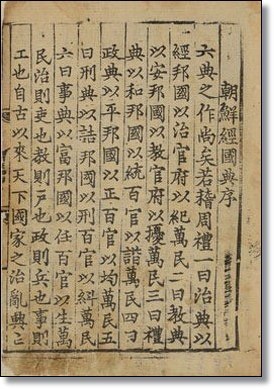 朝鮮經國典序
六典之作尚矣若稽周禮一曰治典以
經邦國以治官府以紀萬民二曰教典
以安邦國以教官府以擾萬民三曰禮
典以和邦國以統百官以諧萬民四曰
政典以平邦國以正百官以均萬民五
曰刑典以詰邦國以刑百官以糾萬民
六曰事典以富邦國以任百官以生萬
民治則吏也教則戶也政則兵也事則
工也自古以來天下國家之治亂興亡